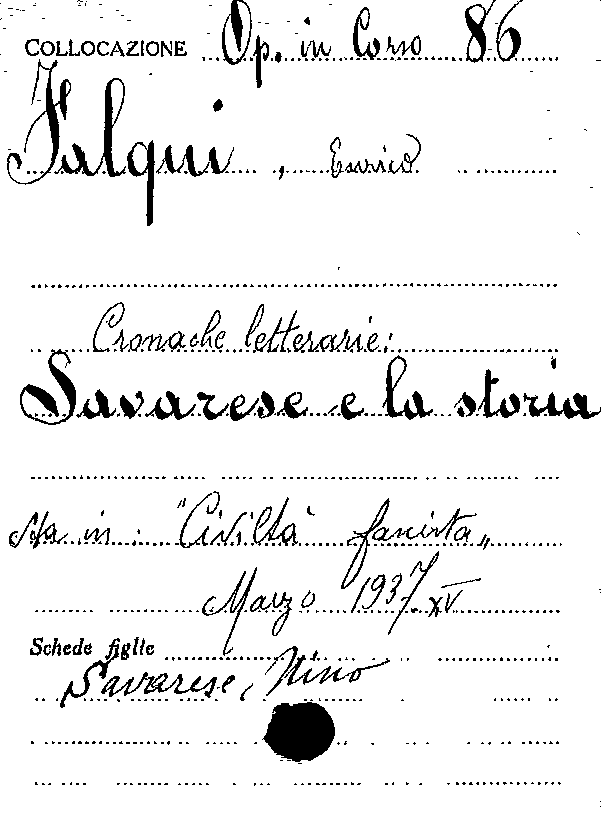 COLLOCAZIONE Op. in Corso 86
Falqui, Enrico
Cronache letterarie:
Savarese e la storia
sta in: "Civiltà fascista„
Marzo 1937. XV
Schede figlie
Savarese, Nino